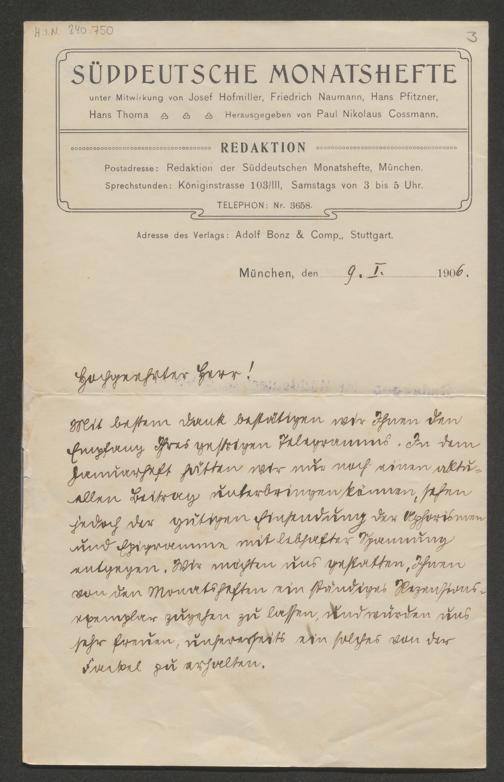 H.I.N. 240.750
3
SÜDDEUTSCHE MONATSHEFTE
unter Mitwirkung von Josef Hofmiller, Friedrich Naumann, Hans Pfitzner,
Hans Thoma Herausgegeben von Paul Nikolaus Cossmann.
REDAKTION
Postadresse: Redaktion der Süddeutschen Monatshefte, München.
Sprechstunden: Königinstrasse 103/III, Samstags von 3 bis 5 Uhr.
TELEPHON: Nr. 3658.
Adresse des Verlags: Adolf Bonz & Comp., Stuttgart.
München, den 9. I. 1906.
Hochgeehrter Herr!
Mit bestem Dank bestätigen wir Ihnen den
Empfang Ihres gestrigen Telegramms. In dem
Januarheft hätten wir nur noch einen aktu-
ellen Beitrag unterbringen können, sehen
jedoch der gütigen Einsendung der Aphorismen
und Epigramme mit lebhafter Spannung
entgegen. Wir möchten uns gestatten, Ihnen
von den Monatsheften ein ständiges Rezensions-
exemplar zugehen zu lassen, und würden uns
sehr freuen, unsererseits ein solches von der
Fackel zu erhalten.